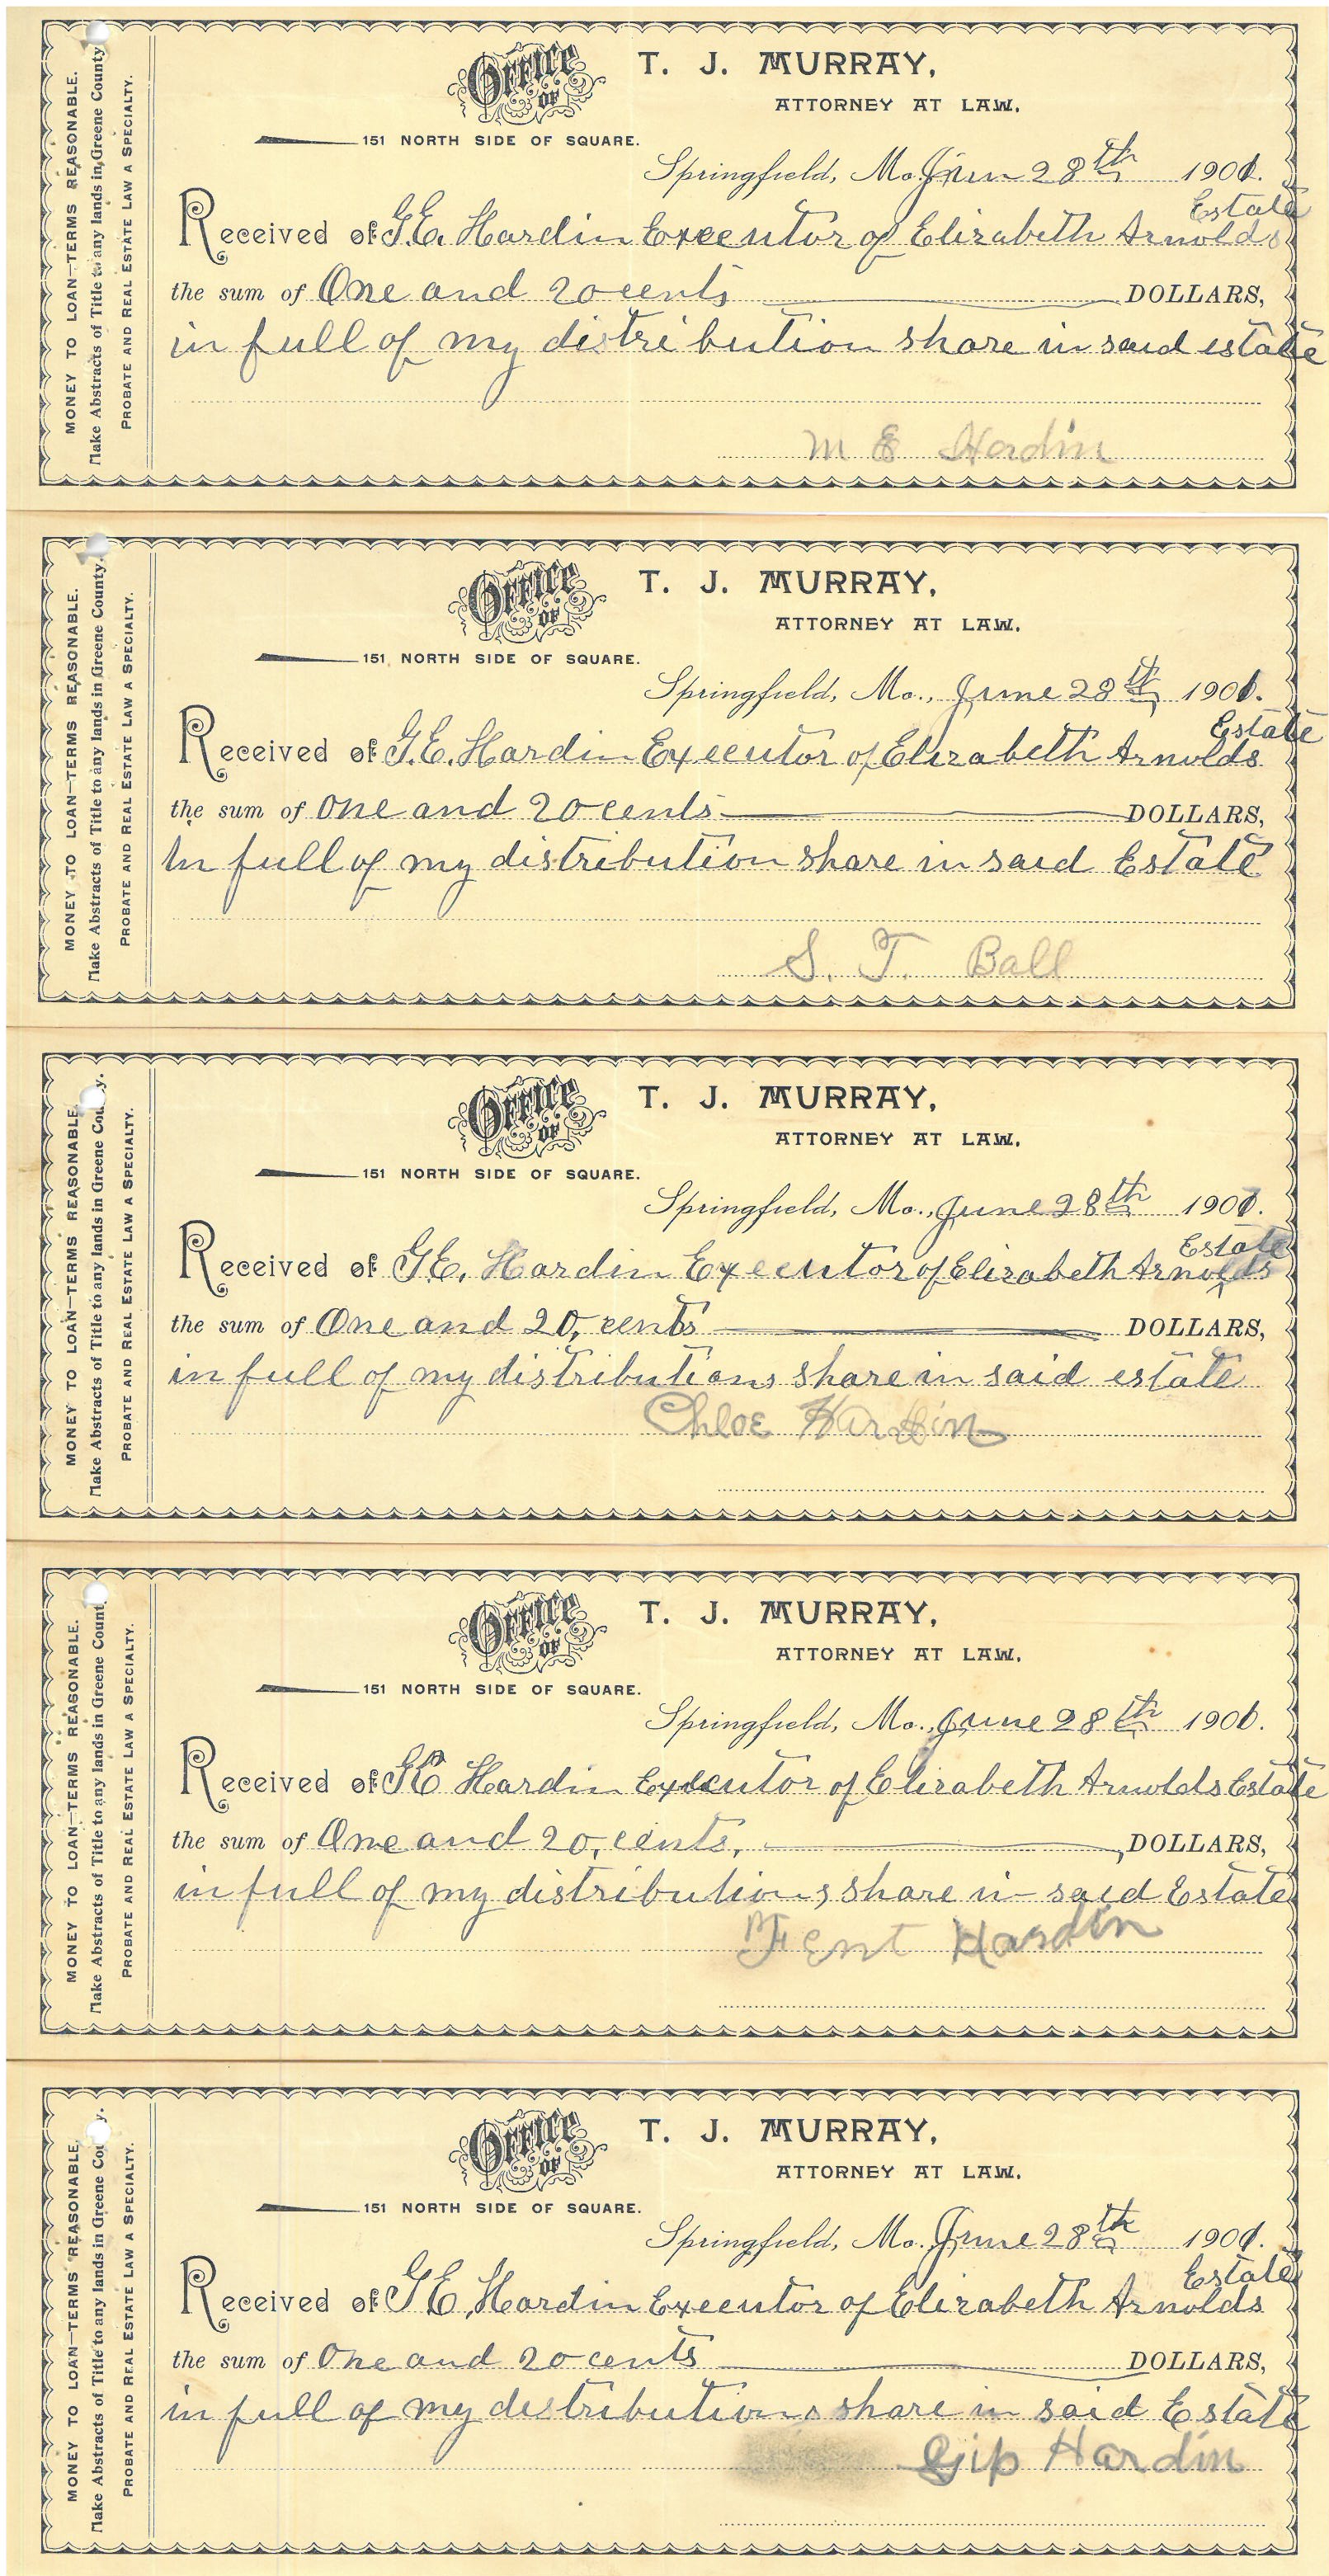 MONEY TO LOAN—TERMS REASONABLE.
Make Abstracts of Title to any lands in Greene County
PROBATE AND REAL ESTATE LAW A SPECIALTY.
Office of T. J. MURRAY,
ATTORNEY AT LAW.
151 NORTH SIDE OF SQUARE.
Springfield, Mo. Jun 28th 1901.
Estate
Received of G.E. Hardin Executor of Elizabeth Arnolds
the sum of One and 20 cents DOLLARS,
in full of my distribution share in said estate
M E Hardin
MONEY TO LOAN—TERMS REASONABLE.
Make Abstracts of Title to any lands in Greene County.
PROBATE AND REAL ESTATE LAW A SPECIALTY.
Office of T. J. MURRAY,
ATTORNEY AT LAW.
151 NORTH SIDE OF SQUARE.
Springfield, Mo., June 28th 1901.
Estate
Received of G.E. Hardin Executor of Elizabeth Arnolds
the sum of One and 20 cents DOLLARS,
In full of my distribution share in said Estate
S. T. Ball
MONEY TO LOAN—TERMS REASONABLE.
Make Abstracts of Title to any lands in Greene Cou y.
PROBATE AND REAL ESTATE LAW A SPECIALTY.
Office of T. J. MURRAY,
ATTORNEY AT LAW.
151 NORTH SIDE OF SQUARE.
Springfield, Mo., June 28th 1901.
Estate
Received of G.E. Hardin Executor of Elizabeth Arnolds
the sum of One and 20, cents DOLLARS,
in full of my distributions share in said estate
Chloe Hardin
MONEY TO LOAN—TERMS REASONABLE.
Make Abstracts of Title to any lands in Greene Count
PROBATE AND REAL ESTATE LAW A SPECIALTY.
Office of T. J. MURRAY,
ATTORNEY AT LAW.
151 NORTH SIDE OF SQUARE.
Springfield, Mo., June 28th 1901.
Received of G E Hardin Executor of Elizabeth Arnolds Estate
the sum of One and 20, cents, DOLLARS,
in full of my distributions share in said Estate
Fent Hardin
MONEY TO LOAN—TERMS REASONABLE.
Make Abstracts of Title to any lands in Greene Cou y.
PROBATE AND REAL ESTATE LAW A SPECIALTY.
Office of T. J. MURRAY,
ATTORNEY AT LAW.
151 NORTH SIDE OF SQUARE.
Springfield, Mo. June 28th 1901.
Estate
Received of G E, Hardin Executor of Elizabeth Arnolds
the sum of One and 20 cents DOLLARS,
in full of my distributions share in said Estate
Gip Hardin